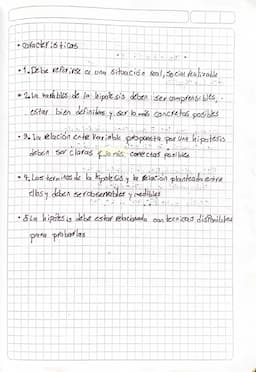 • Características
• 1. Debe referirse a una situación real, social realizable
• 2. La variables de la hipotesis deben ser comprensibles,
estar bien definidas y ser lo más concretas posibles
• 3. La relación entre variable propuesta por una hipotesis
deben ser claras y lo más correctas posible
• 4. Los terminos de la hipotesis y la relación planteada entre
ellas y deben ser observables y medibles
• 5 La hipótesis debe estar relacionada con tecnicas disponibles
para probarlas